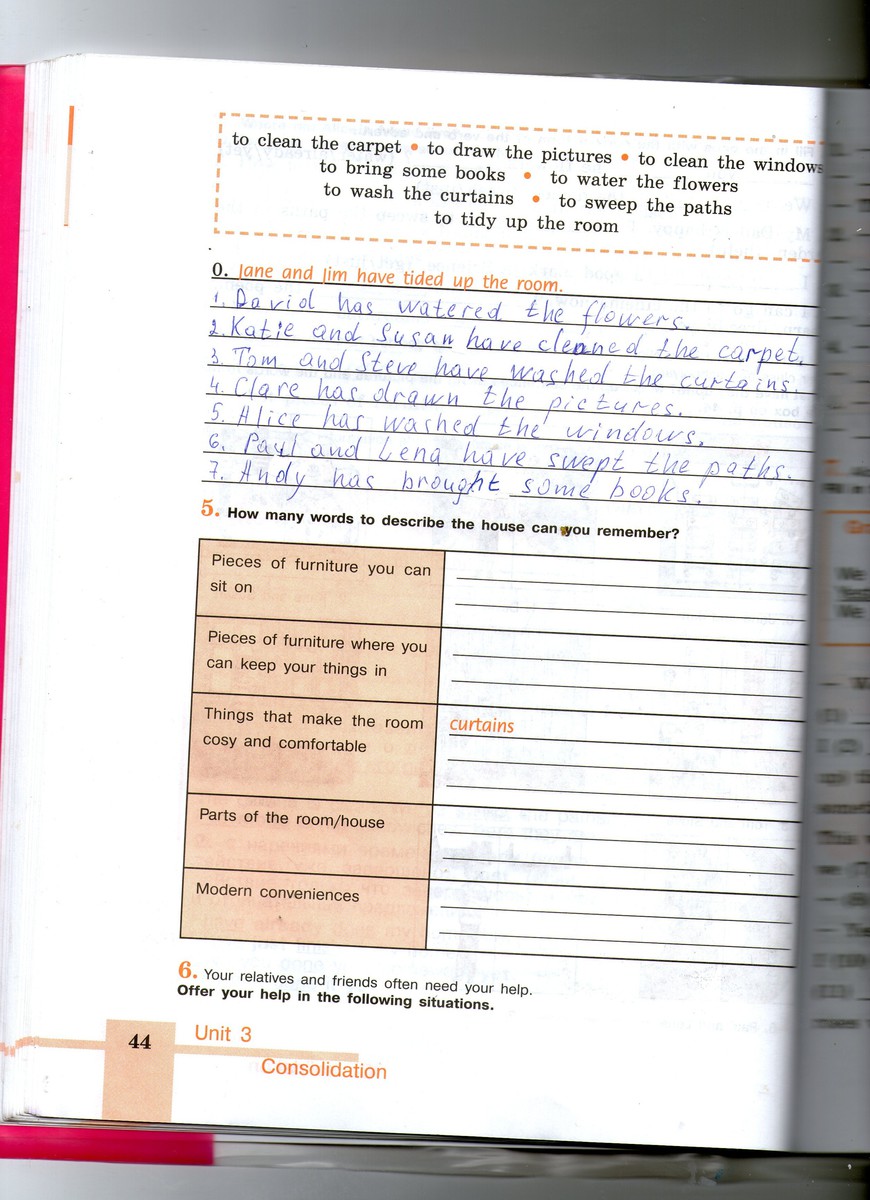 to clean the carpet • to draw the pictures • to clean the windows
to bring some books • to water the flowers
to wash the curtains • to sweep the paths
to tidy up the room
0. Jane and Jim have tided up the room.
1. David has watered the flowers.
2. Katie and Susan have cleaned the carpet.
3. Tom and Steve have washed the curtains.
4. Clare has drawn the pictures.
5. Alice has washed the windows.
6. Paul and Lena have swept the paths.
7. Andy has brought some books.
5. How many words to describe the house can you remember?
Pieces of furniture you can
sit on
Pieces of furniture where you
can keep your things in
Things that make the room
cosy and comfortable
curtains
Parts of the room/house
Modern conveniences
6. Your relatives and friends often need your help.
Offer your help in the following situations.
44
Unit 3
Consolidation